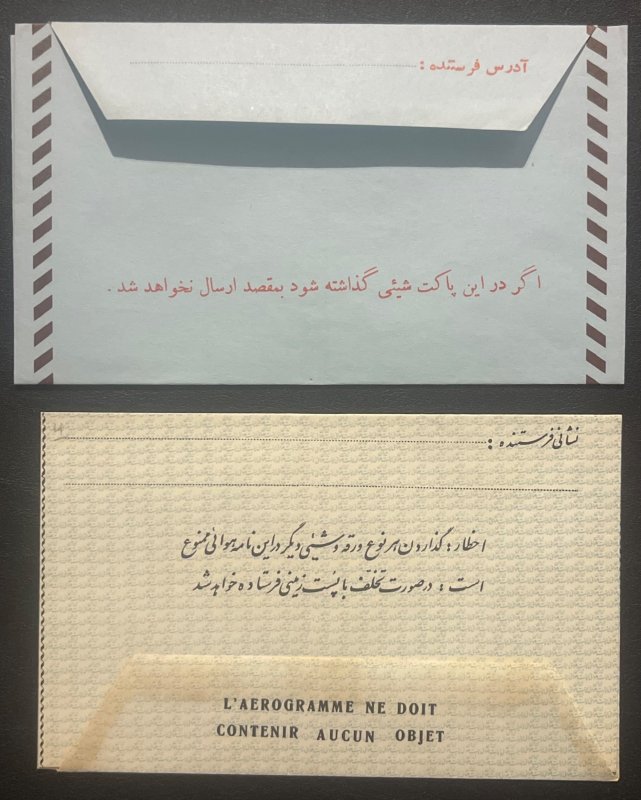 آدرس فرستنده :
اگر در این پاکت شیئی گذاشته شود بمقصد ارسال نخواهد شد .
نشانی فرستنده :
اخطار : گذاردن هر نوع ورقه و شیئی دیگر در این نامه هوائی ممنوع
است ؛ در صورت تخلف با پست زمینی فرستاده خواهد شد
L'AEROGRAMME NE DOIT
CONTENIR AUCUN OBJET